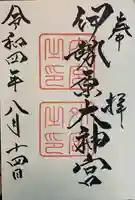 奉拝
伊勢原大神宮
令和四年八月十四日